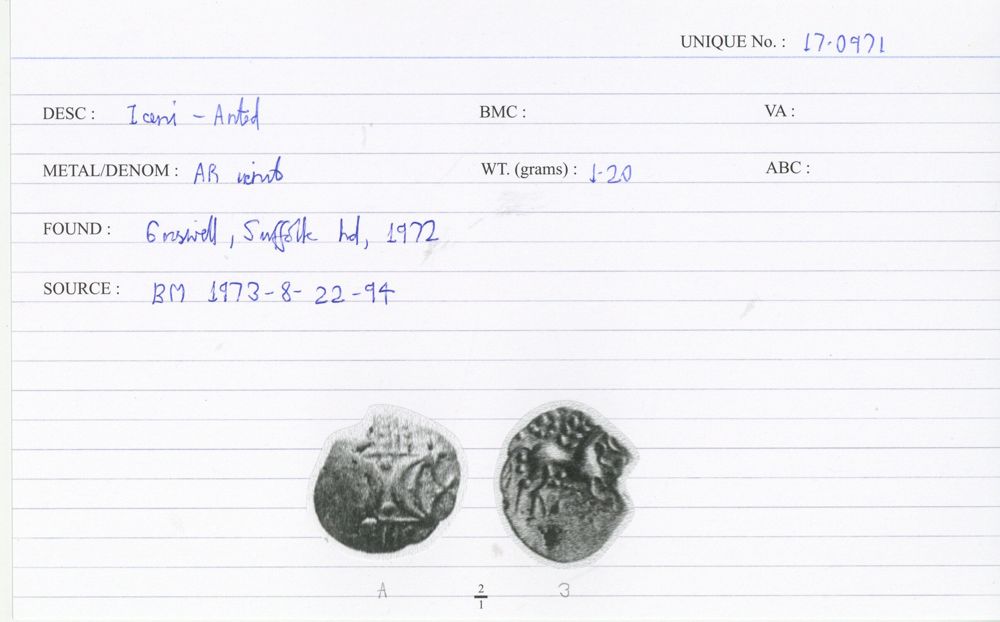 UNIQUE No. : 17.0971
DESC : Iceni - Anted BMC : VA :
METAL/DENOM : AR unit WT. (grams) : 1.20 ABC :
FOUND : Eriswell, Suffolk hd, 1972
SOURCE : BM 1973-8-22-94
A 2/1 3